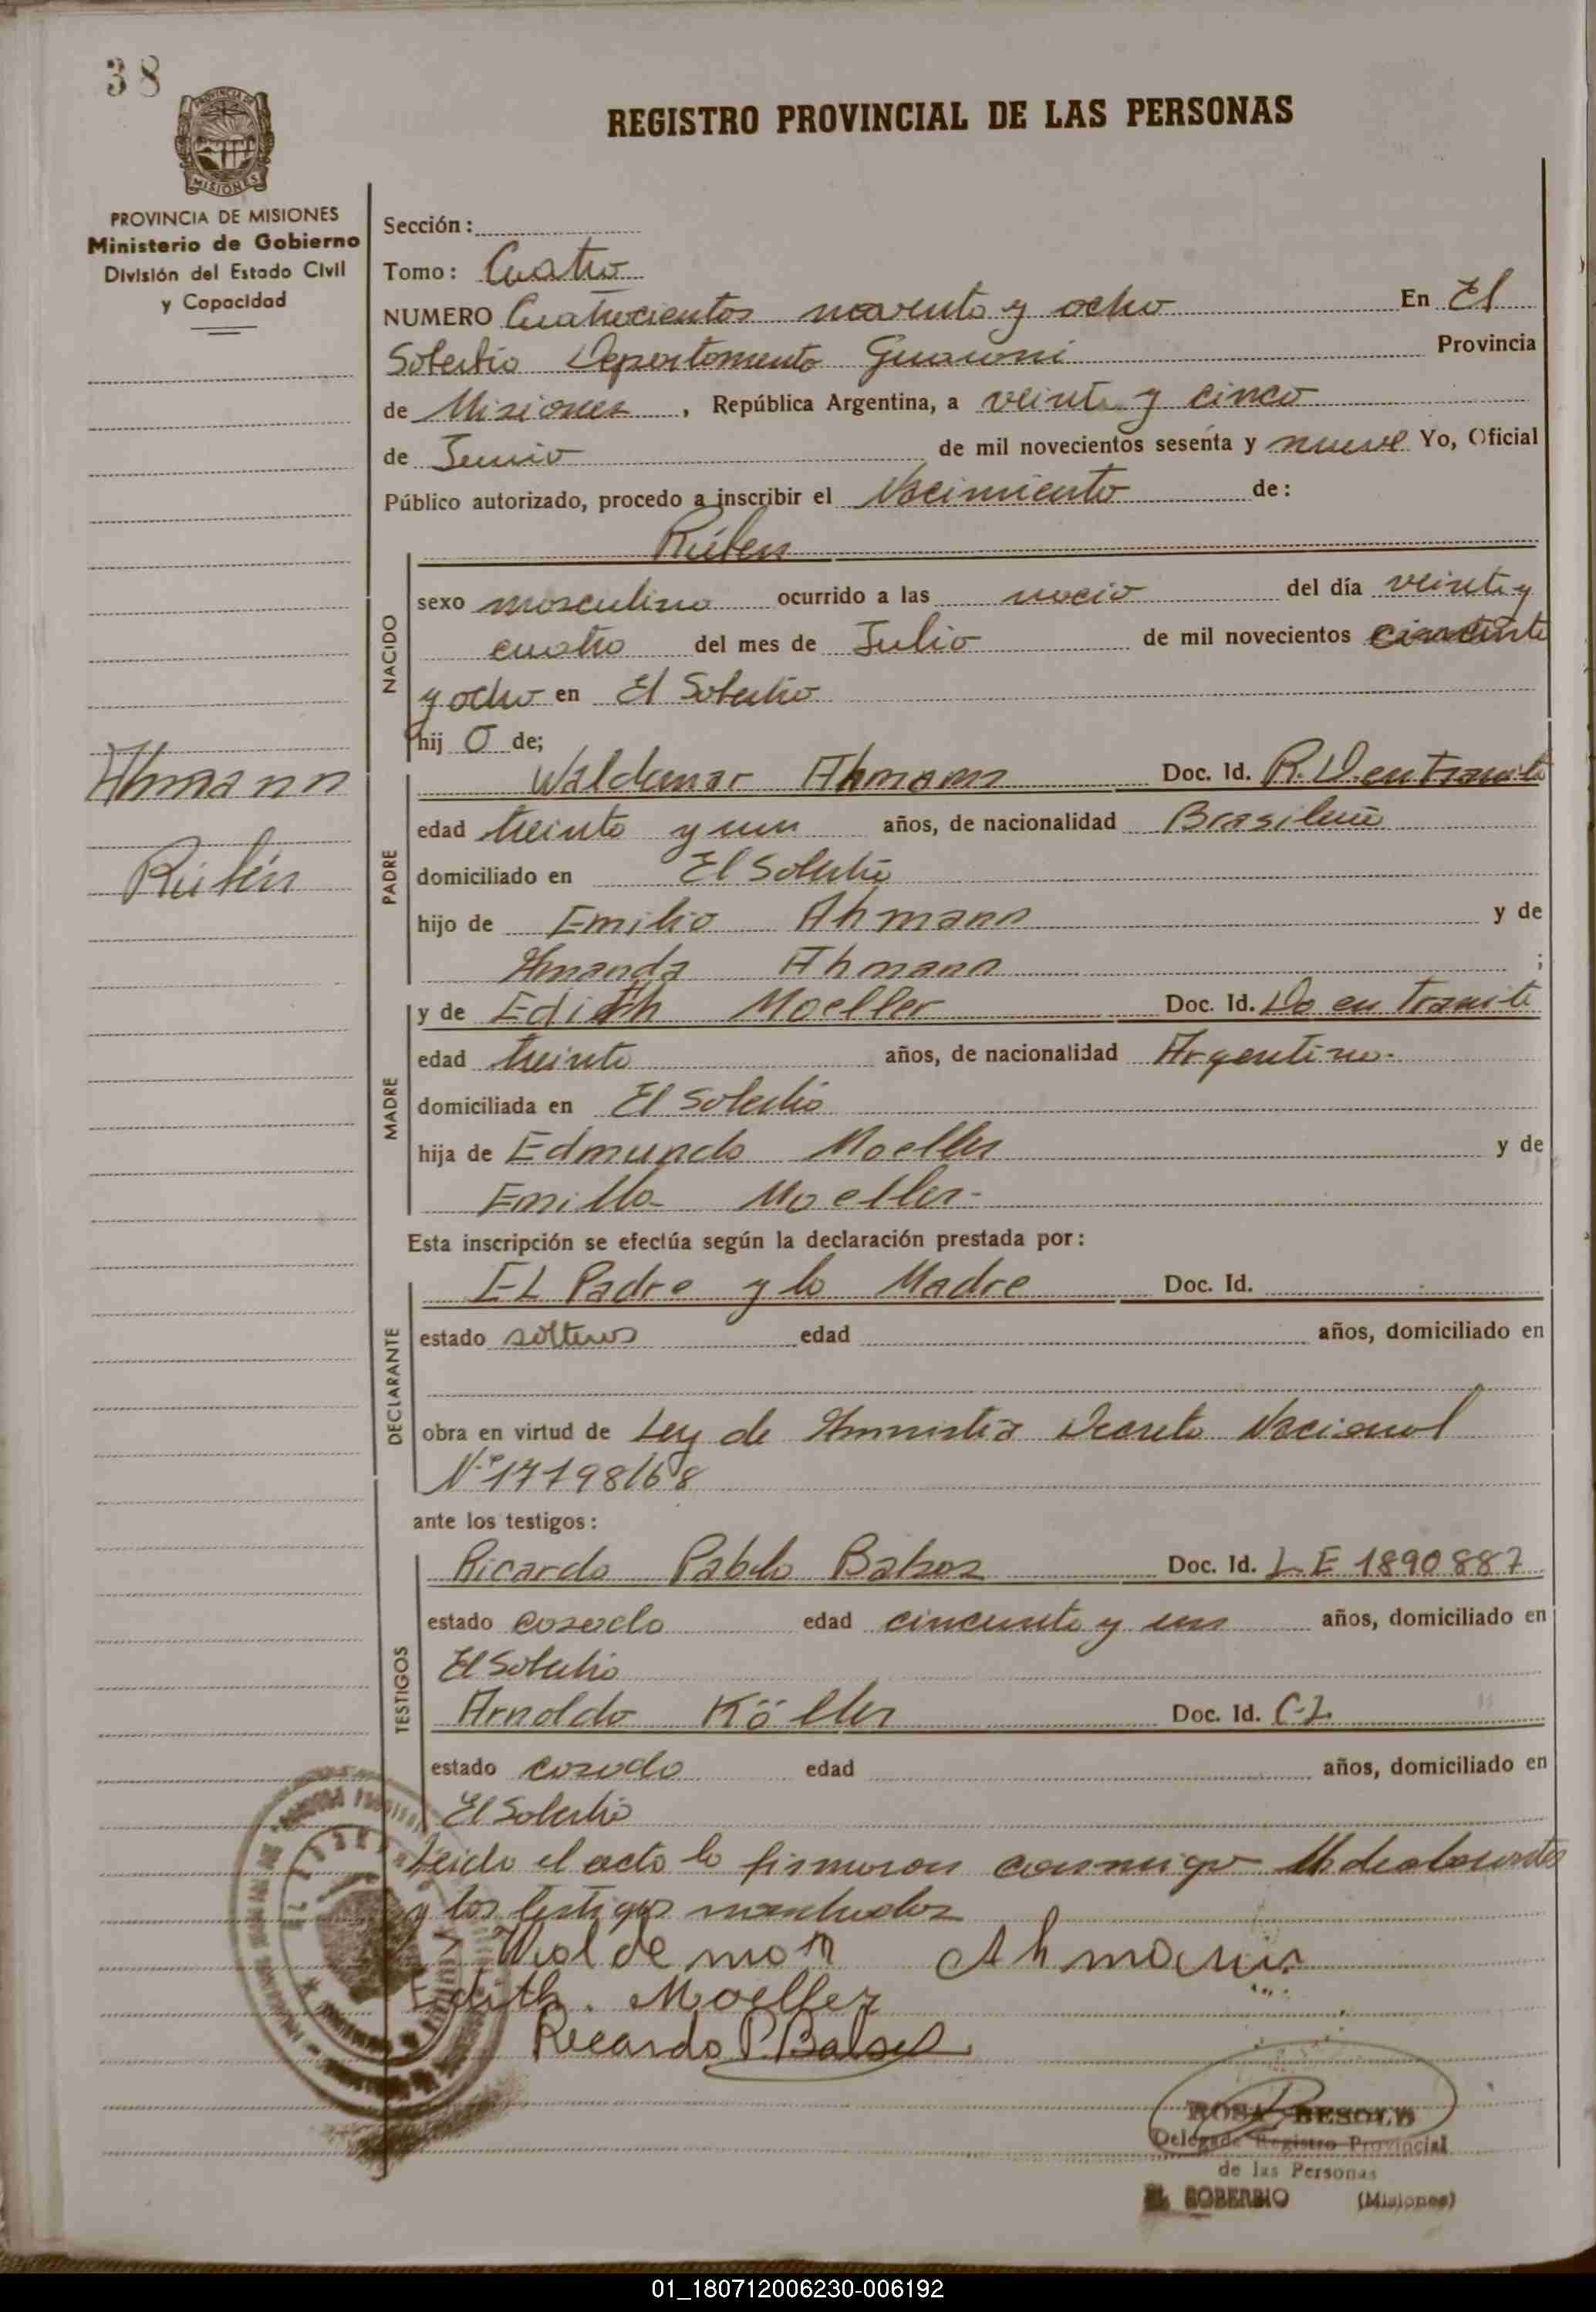 38
PROVINCIA DE MISIONES
REGISTRO PROVINCIAL DE LAS PERSONAS
PROVINCIA DE MISIONES
Ministerio de Gobierno
División del Estado Civil
y Capacidad
Sección:
Tomo: Cuatro
NUMERO Cuatrocientos noventa y ocho En El
Soberbio Departamento Guarani Provincia
de Misiones, República Argentina, a veinte y cinco
de Junio de mil novecientos sesenta y nueve Yo, Oficial
Público autorizado, procedo a inscribir el Nacimiento de:
Rúben
NACIDO
sexo masculino ocurrido a las nació del día veinte y
cuatro del mes de Julio de mil novecientos
y ocho en El Soberbio
hij o de;
Ahmann
Rubén
PADRE
Waldemar Ahmann Doc. Id. R.D. en Tramite
edad treinta y un años, de nacionalidad Brasileño
domiciliado en El Soberbio
hijo de Emilio Ahmann y de
Amanda Ahmann ;
MADRE
y de Edith Moeller Doc. Id. Do en Tramite
edad treinta años, de nacionalidad Argentina.
domiciliada en El Soberbio
hija de Edmundo Moeller y de
Emilla Moeller.
Esta inscripción se efectúa según la declaración prestada por:
DECLARANTE
EL Padre y la Madre Doc. Id.
estado solteros edad años, domiciliado en
obra en virtud de Ley de Amnistia Decreto Nacional
Nº 17198/68
ante los testigos:
TESTIGOS
Ricardo Pablo Balsos Doc. Id. L.E 1890887
estado casado edad cincuenta y un años, domiciliado en
El Soberbio
Arnoldo Köller Doc. Id. C.I.
estado casado edad años, domiciliado en
El Soberbio
Leida el acta la firmaron conmigo declarantes
y los testigos nombrados
Waldemar Ahmann
Edith. Moeller
Ricardo P. Balsos
ROSA BESOLD
Delegada Registro Provincial
de las Personas
EL SOBERBIO (Misiones)
01_180712006230-006192